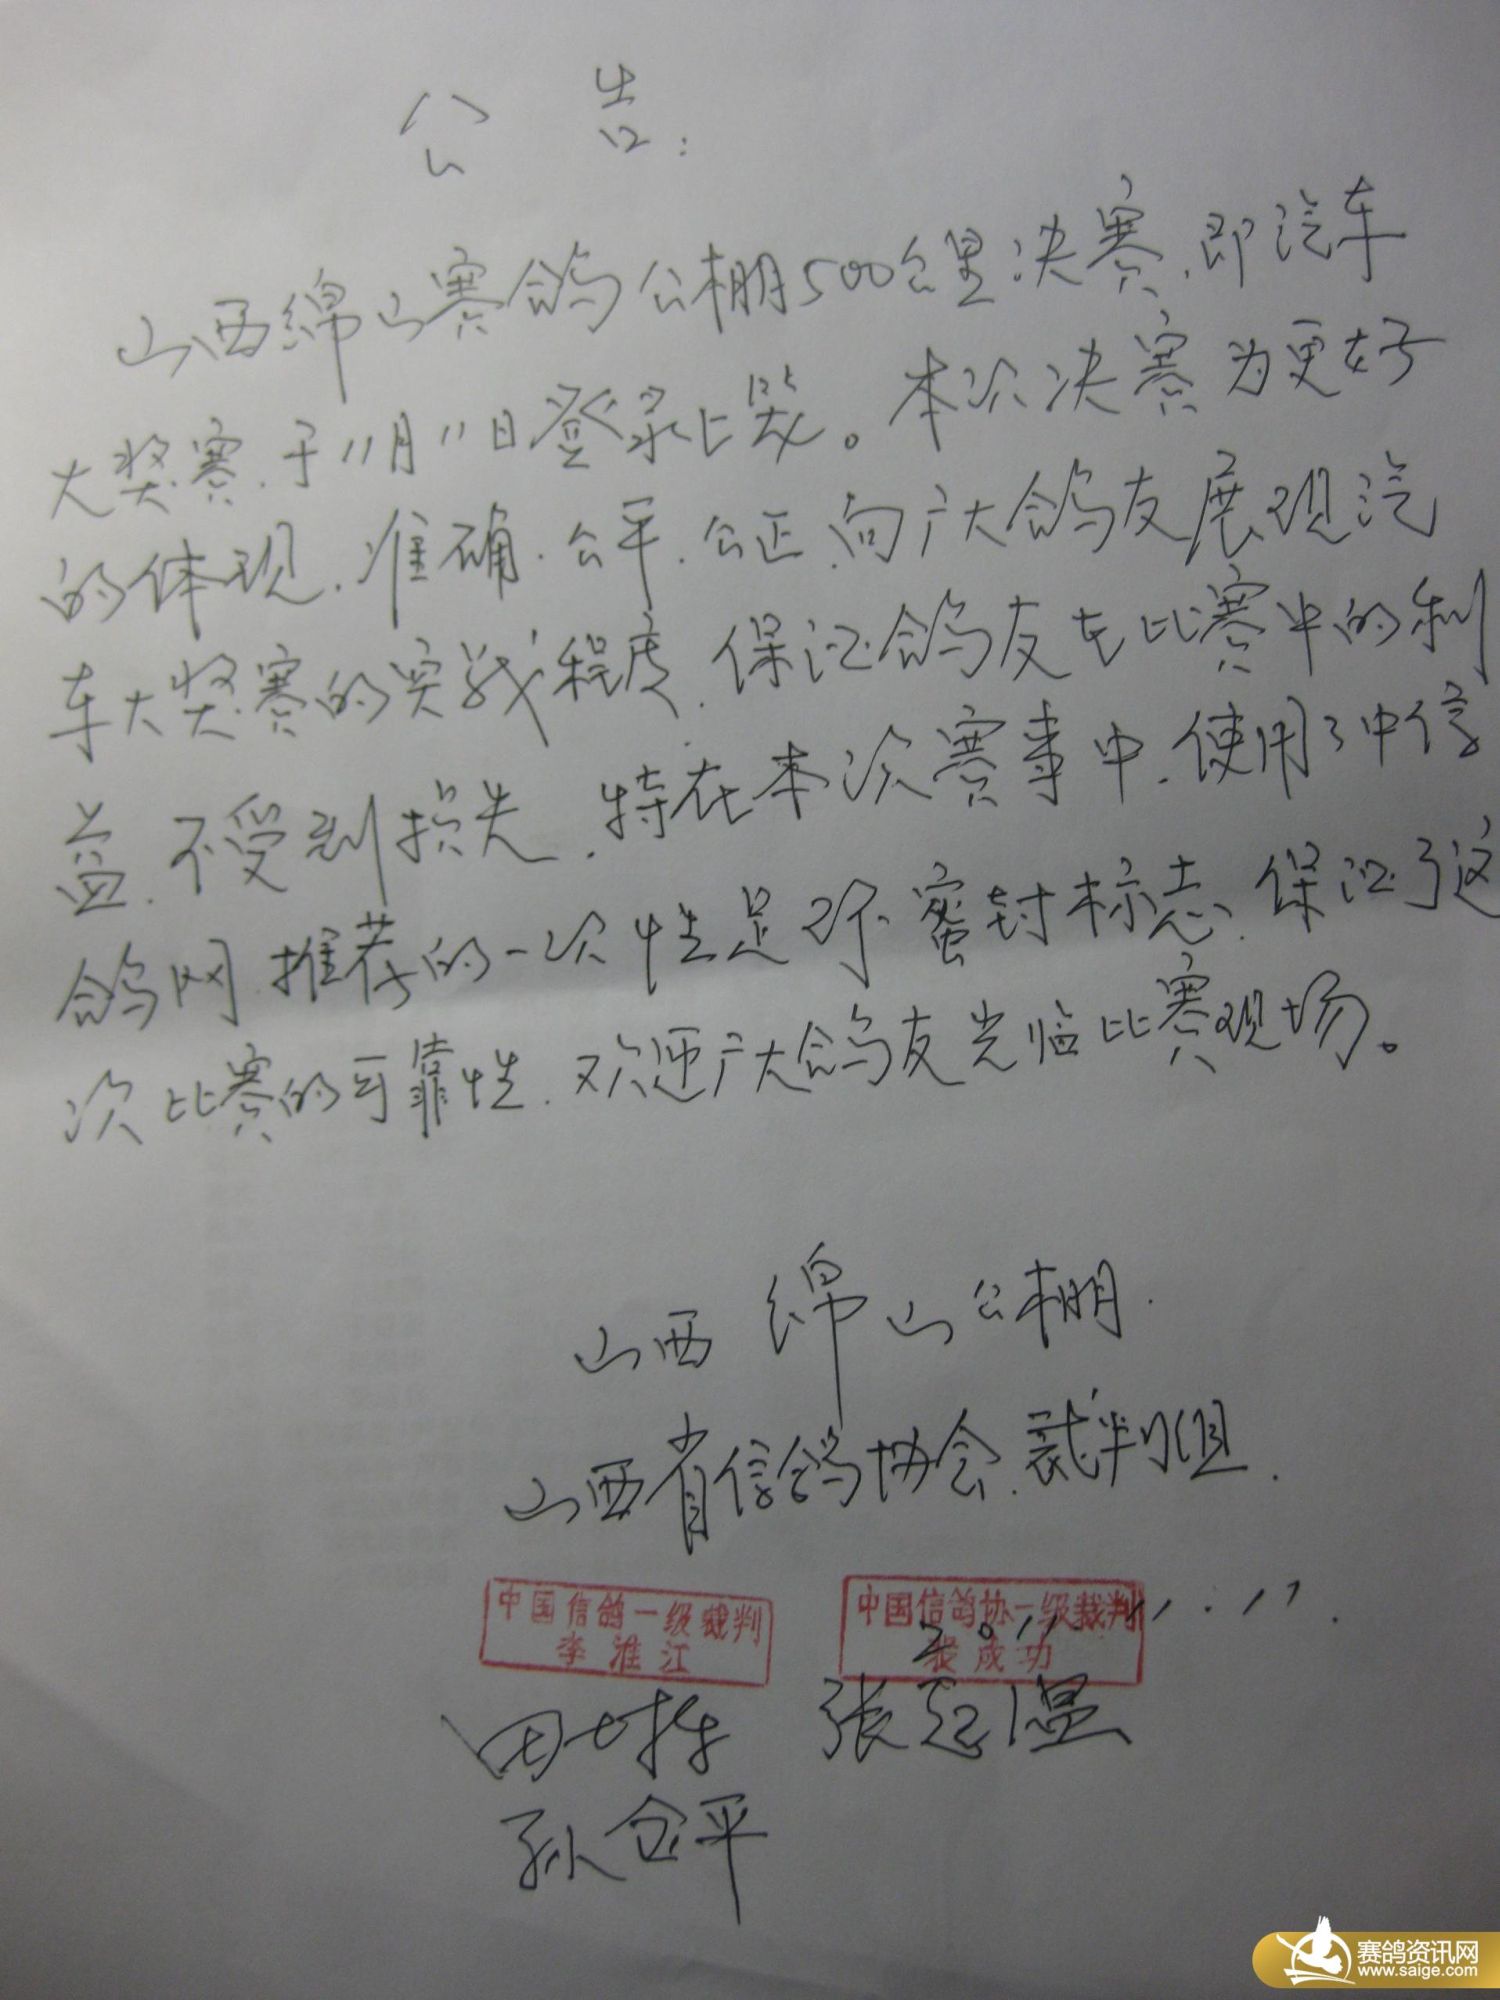 公告:
山西绵山赛鸽公棚500公里决赛,即汽车
大奖赛,于11月11日登录上笼。本次决赛为更好
的体现,准确.公平.公正,向广大鸽友展观汽
车大奖赛的实战程度,保证鸽友在比赛中的利
益,不受到损失,特在本次赛事中,使用了中信
鸽网,推荐的一次性足环蜜封标志,保证了这
次比赛的可靠性,欢迎广大鸽友光临比赛现场。
山西绵山公棚.
山西省信鸽协会,裁判组.
中国信鸽一级裁判
李淮江
中国信鸽协一级裁判
张成功
2011.11.11.
田
张
孙仓平
赛鸽资讯网
www.saige.com